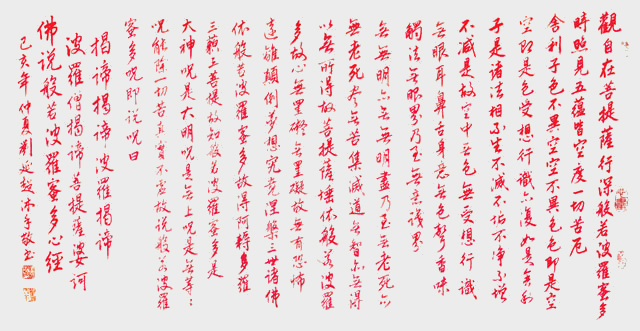 觀自在菩提薩行深般若波羅蜜多
時照見五蘊皆空度一切苦厄
舍利子色不異空空不異色色即是空
空即是色受想行識亦復如是舍利
子是諸法相不生不滅不垢不淨不增
不減是故空中無色無受想行識
無眼耳鼻舌身意無色聲香味
觸法無眼界乃至無意識界
無無明亦無無明盡乃至無老死亦
無老死盡無苦集滅道無智亦無得
以無所得故菩提薩埵依般若波羅蜜
多故心無罣礙無罣礙故無有恐怖
遠離顛倒夢想究竟涅槃三世諸佛
依般若波羅蜜多故得阿耨多羅
三藐三菩提故知般若波羅蜜多是
大神咒是大明咒是無上咒是無等:
咒能除一切苦真實不虛故說般若波羅
蜜多咒即說咒曰
揭諦揭諦波羅揭諦
波羅僧揭諦菩提薩婆訶
佛說般若波羅蜜多心經
己亥年仲夏劉延龍沐手敬書